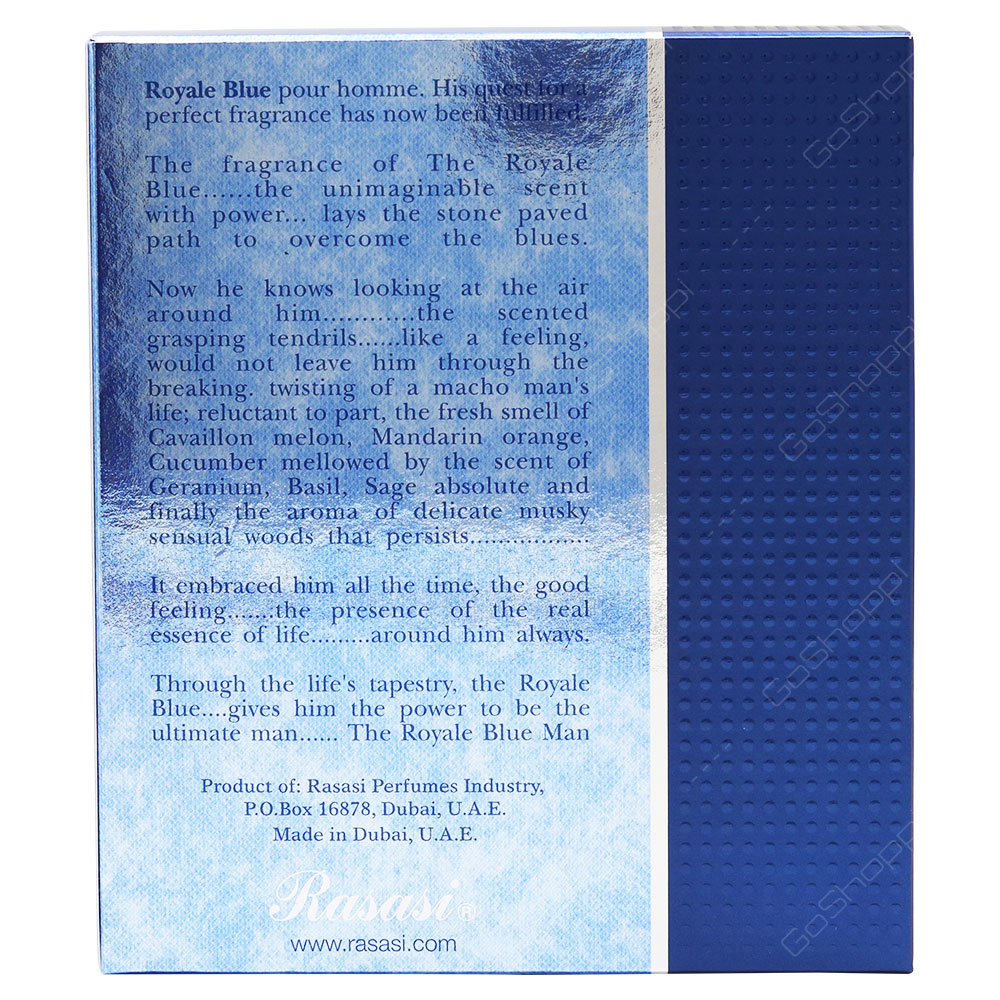 Royale Blue pour homme. His quest for a
perfect fragrance has now been fulfilled.
The fragrance of The Royale
Blue......the unimaginable scent
with power... lays the stone paved
path to overcome the blues.
Now he knows looking at the air
around him.............the scented
grasping tendrils......like a feeling,
would not leave him through the
breaking. twisting of a macho man's
life; reluctant to part, the fresh smell of
Cavaillon melon, Mandarin orange,
Cucumber mellowed by the scent of
Geranium, Basil, Sage absolute and
finally the aroma of delicate musky
sensual woods that persists.................
It embraced him all the time, the good
feeling.......the presence of the real
essence of life.........around him always.
Through the life's tapestry, the Royale
Blue....gives him the power to be the
ultimate man...... The Royale Blue Man
Product of: Rasasi Perfumes Industry,
P.O.Box 16878, Dubai, U.A.E.
Made in Dubai, U.A.E.
Rasasi®
www.rasasi.com
GoShoppi
GoShoppi
GoShoppi
GoShoppi